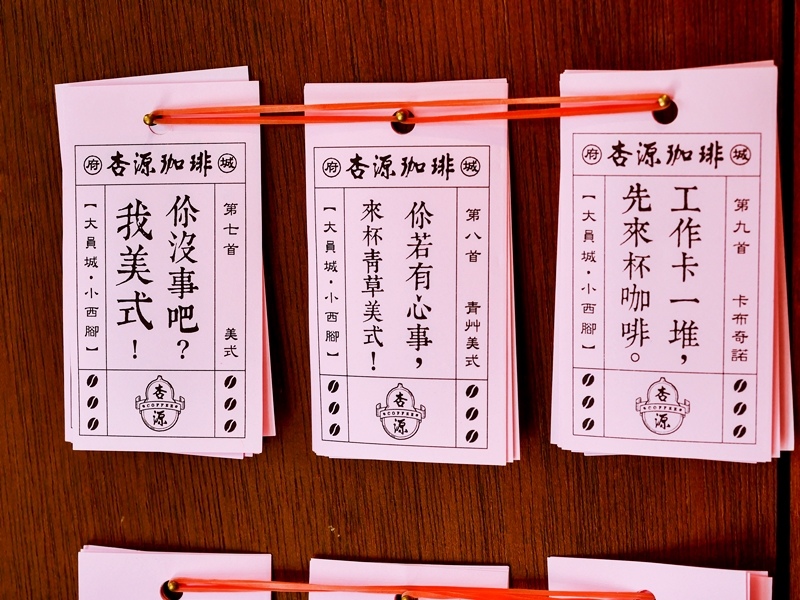 府 杏源珈琲 城
第七首 美式
你沒事吧？
我美式！
【大員城·小西腳】
杏
COFFEE
源
府 杏源珈琲 城
第八首 青艸美式
你若有心事，
來杯青草美式！
【大員城·小西腳】
杏
COFFEE
源
府 杏源珈琲 城
第九首 卡布奇諾
工作卡一堆，
先來杯咖啡。
【大員城·小西腳】
杏
COFFEE
源